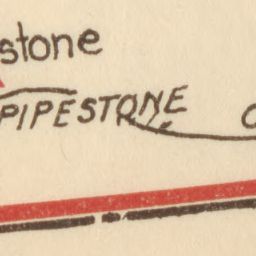 stone
PIPESTONE